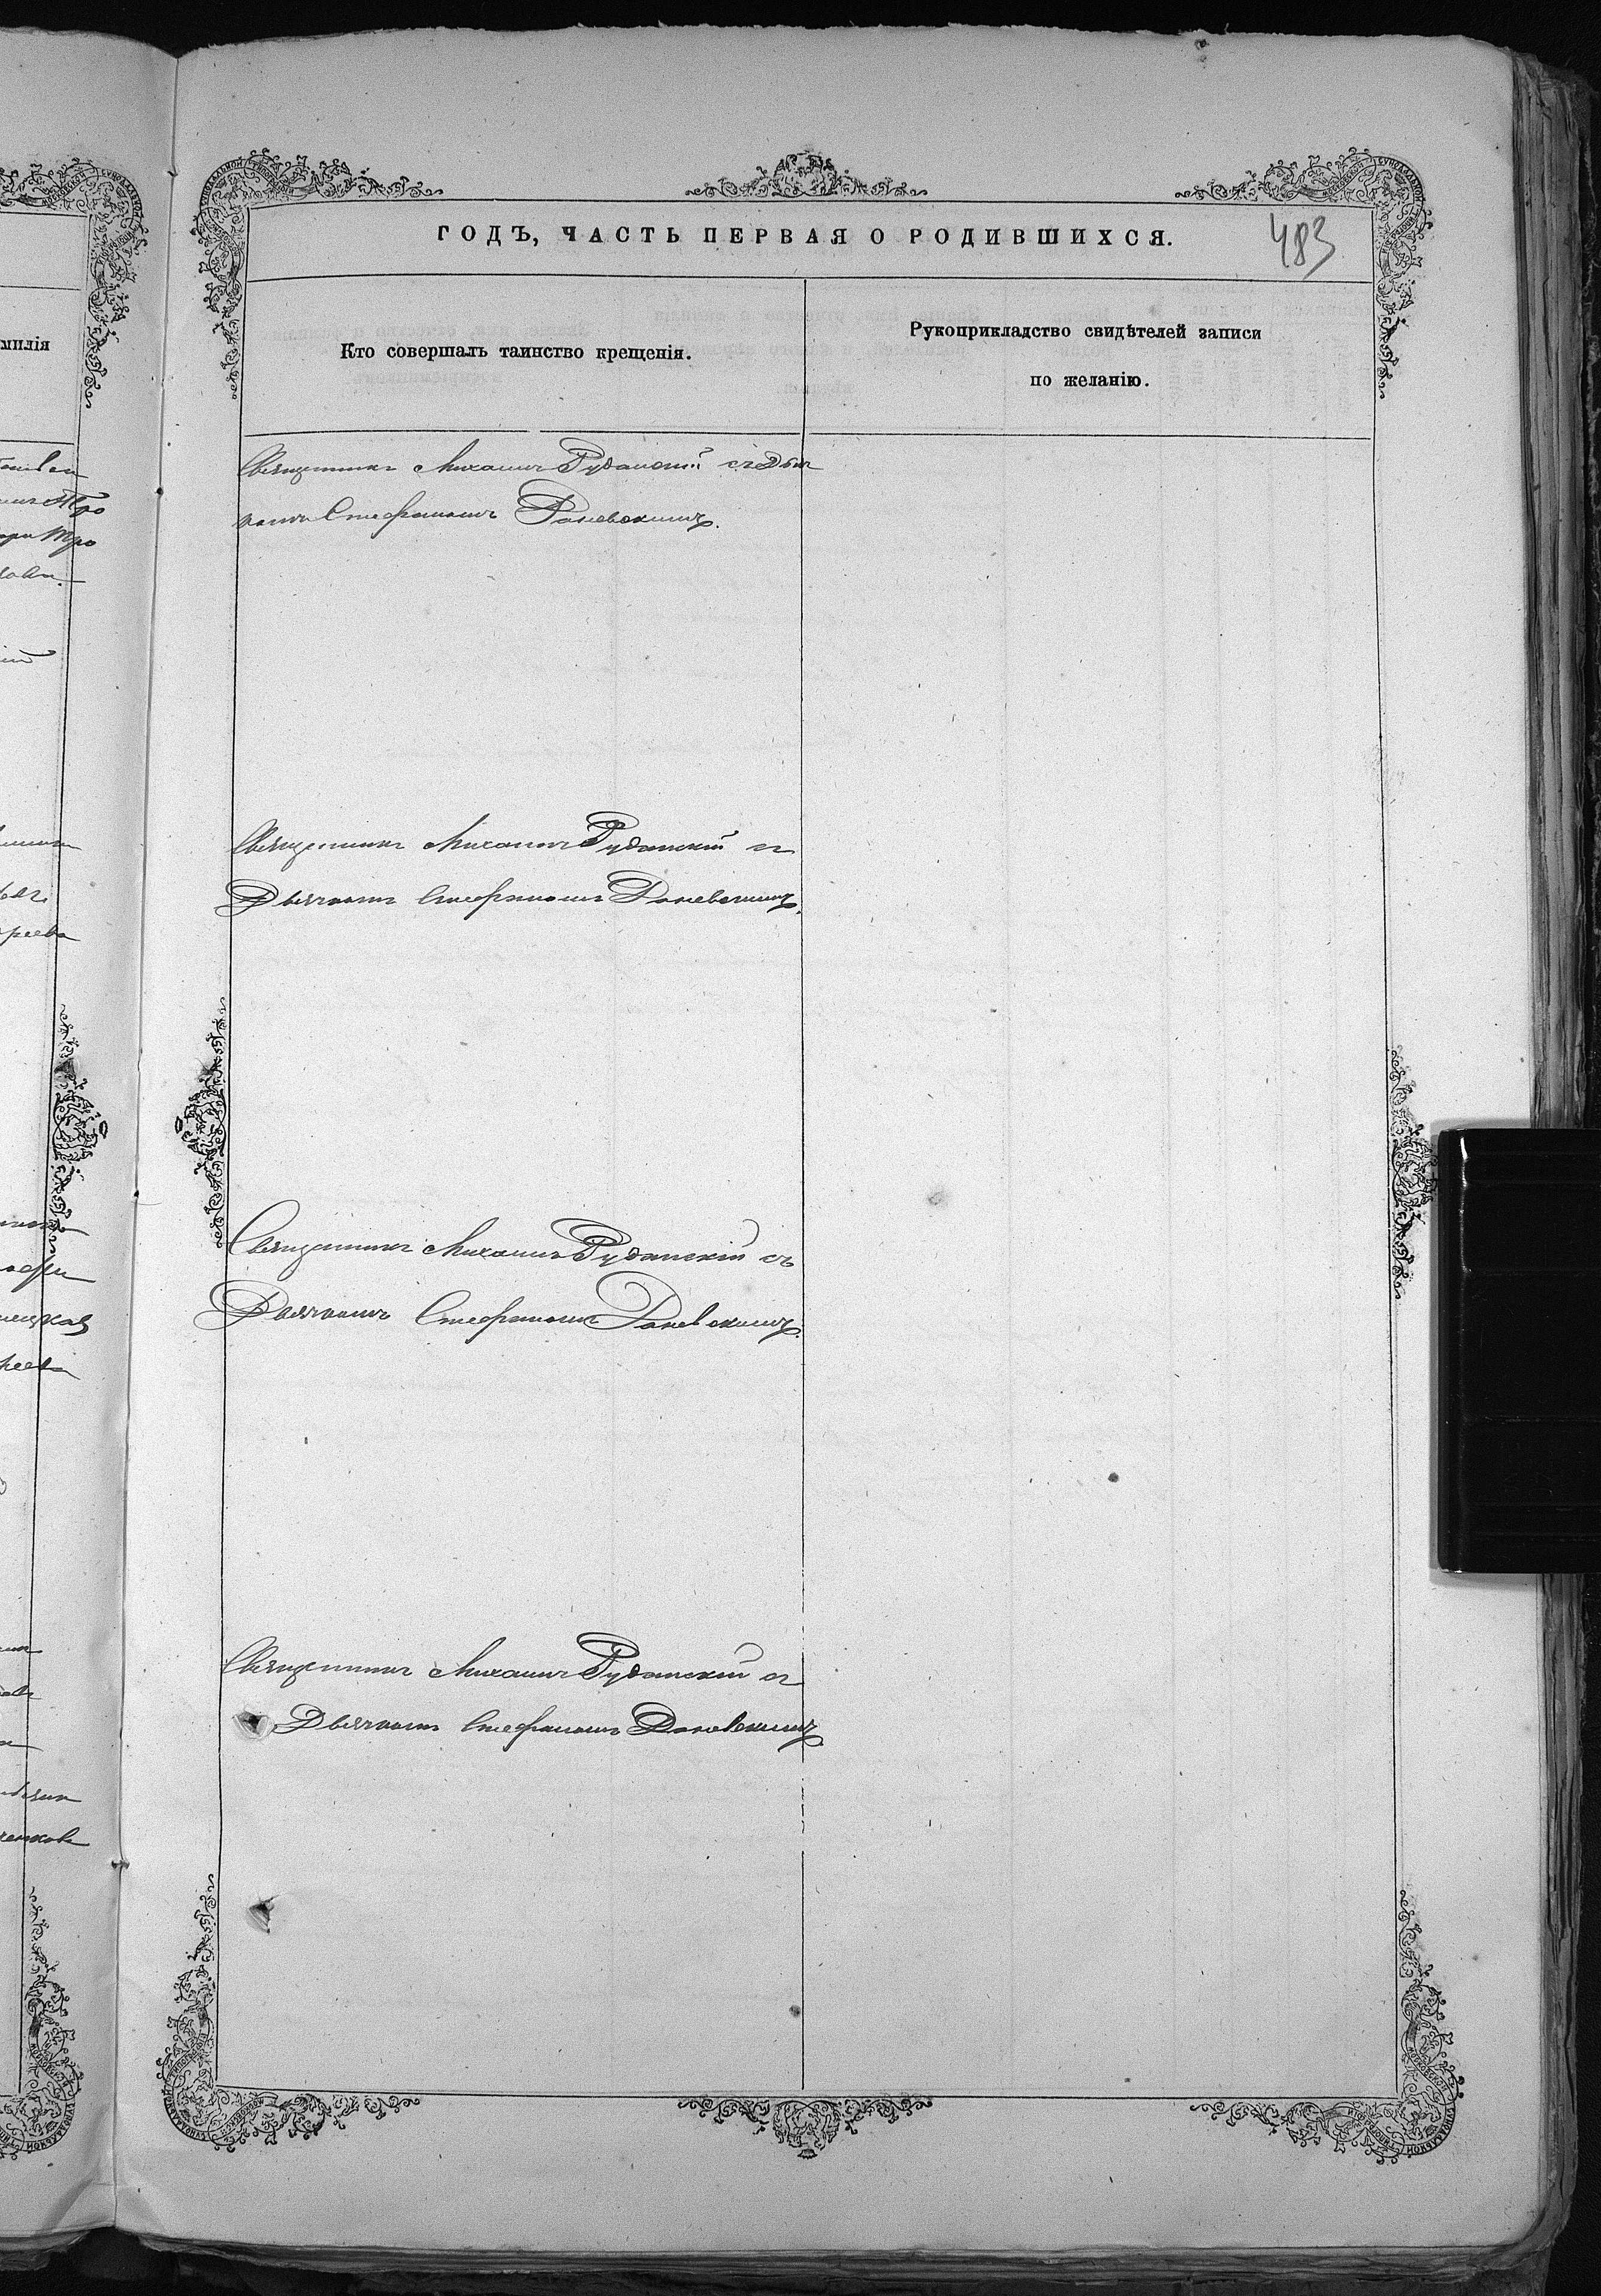 ГОДЪ, ЧАСТЬ ПЕРВАЯ О РОДИВШИХСЯ.
483
Кто совершалъ таинство крещенія.
Рукоприкладство свидѣтелей записи
по желанію.
Священникъ Михаилъ Руданскій съ Дьяч
комъ Стефаномъ Раневскимъ.
Священникъ Михаилъ Руданскій съ
Дьячкомъ Стефаномъ Раневскимъ.
Священникъ Михаилъ Руданскій съ
Дьячкомъ Стефаномъ Раневскимъ.
Священникъ Михаилъ Руданскій съ
Дьячкомъ Стефаномъ Раневскимъ.